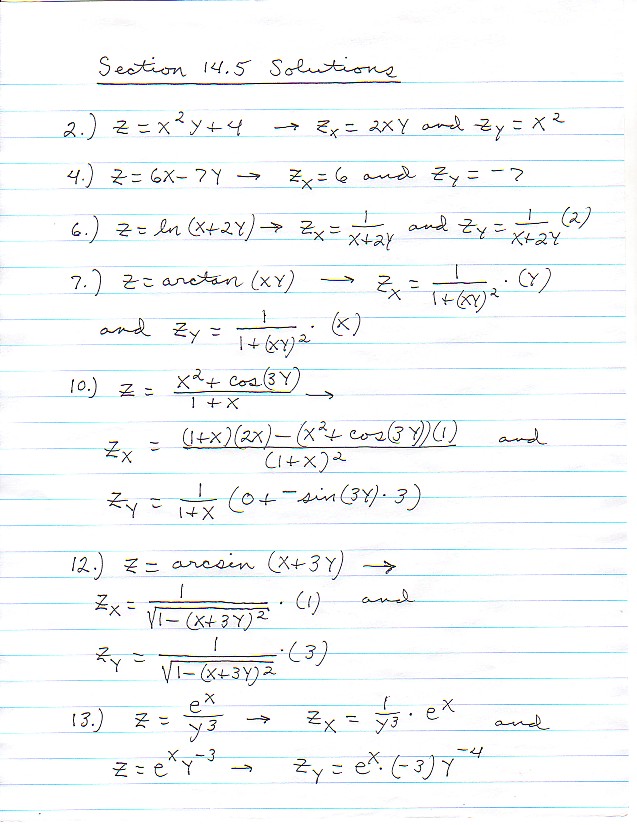 Section 14.5 Solutions
2.) Z = X²Y+4 → Z_X = 2XY and Z_Y = X²
4.) Z = 6X-7Y → Z_X = 6 and Z_Y = -7
6.) Z = ln (X+2Y) → Z_X = 1/(X+2Y) and Z_Y = 1/(X+2Y) (2)
7.) Z = arctan (XY) → Z_X = 1/(1+(XY)²) · (Y)
and Z_Y = 1/(1+(XY)²) · (X)
10.) Z = (X²+cos(3Y))/(1+X) →
Z_X = ((1+X)(2X)-(X²+cos(3Y))(1))/(1+X)² and
Z_Y = 1/(1+X) (0+ -sin(3Y)·3)
12.) Z = arcsin (X+3Y) →
Z_X = 1/√(1-(X+3Y)²) · (1) and
Z_Y = 1/√(1-(X+3Y)²) · (3)
13.) Z = e^X/Y³ → Z_X = 1/Y³ · e^X and
Z = e^X Y^-3 → Z_Y = e^X · (-3) Y^-4